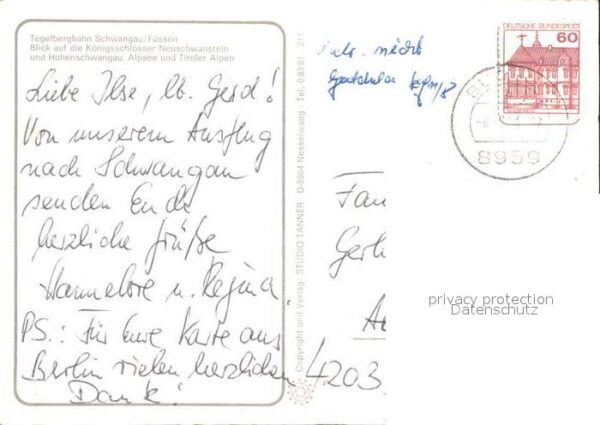 Tegelbergbahn Schwangau/Füssen
Blick auf die Königsschlösser Neuschwanstein
und Hohenschwangau, Alpsee und Tiroler Alpen
Liebe Ilse, lb. Gerd!
Von unserem Ausflug
nach Schwangau
senden Euch
herzliche Grüße
Hannelore u. Regina.
PS.: Für Eure Karte aus
Berlin vielen herzlichen
Dank!
Copyright und Verlag: STUDIO TANNER D-8964 Nesselwang · Tel. 0 83 61 211
nicht
DEUTSCHE BUNDESPOST
60
8959
Fam
Ger
4203
privacy protection
Datenschutz